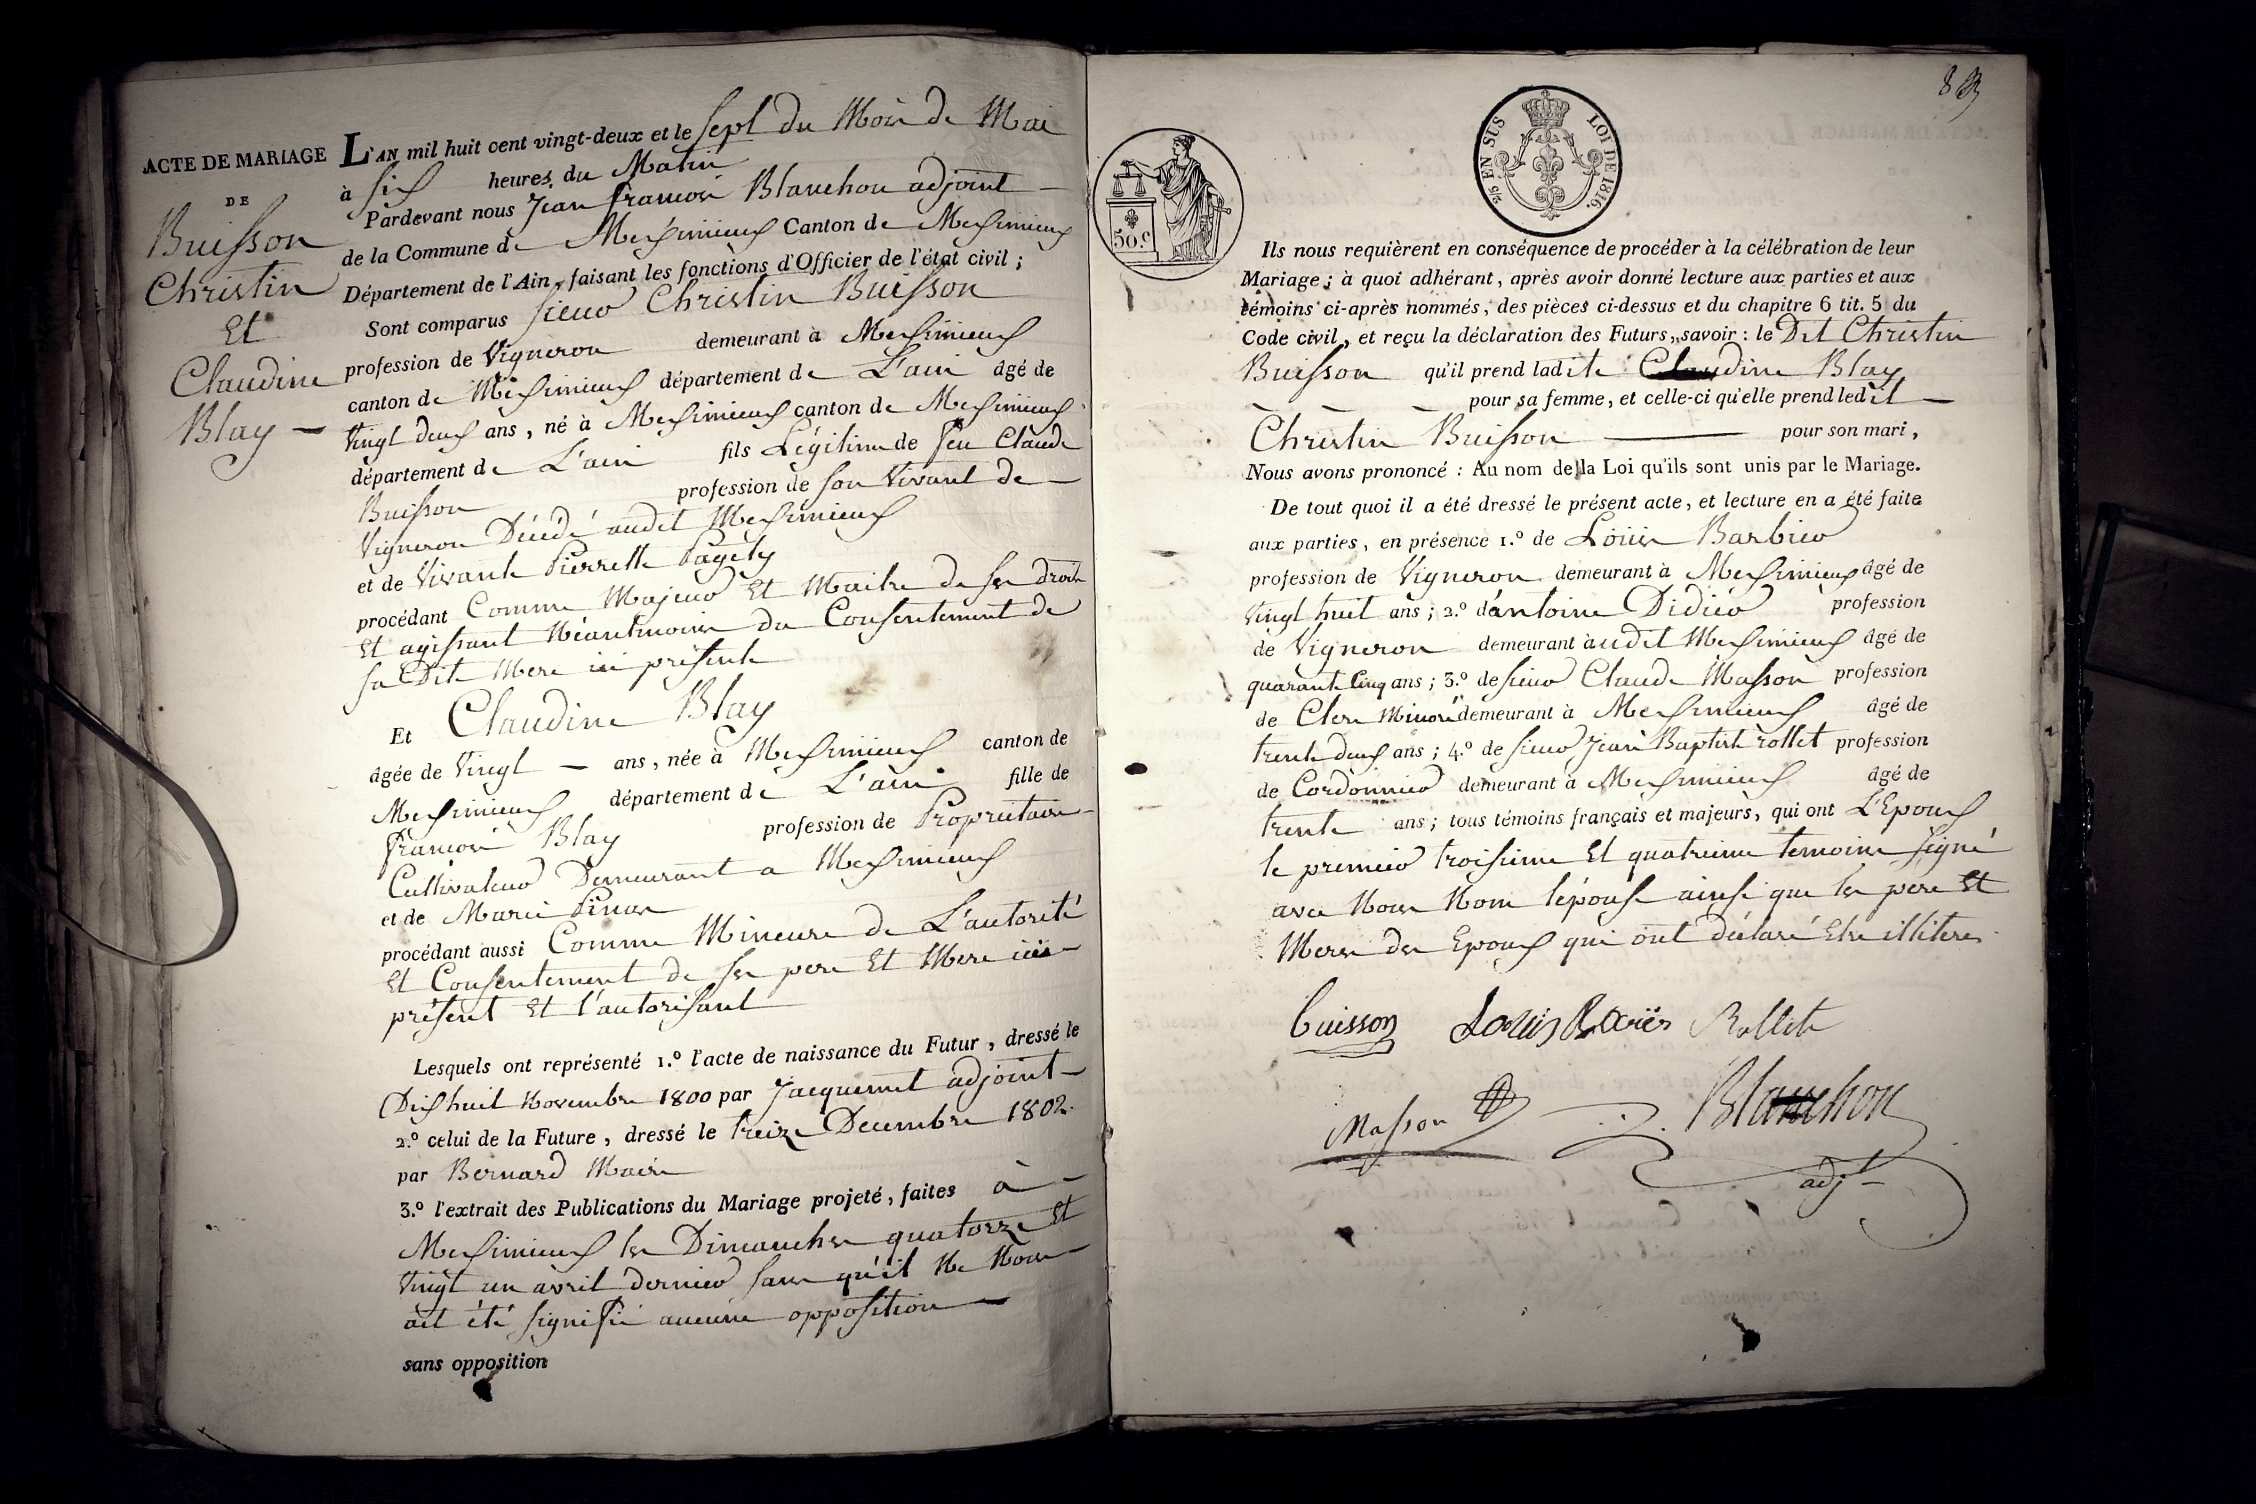 ACTE DE MARIAGE
DE
Buisson
Christin
Et
Claudine
Blay —
L'AN mil huit cent vingt-deux et le sept du Mois de Mai
à Six heures du Matin
Pardevant nous Jean François Blanchon adjoint —
de la Commune de Meximieux Canton de Meximieux
Département de l'Ain, faisant les fonctions d'Officier de l'état civil ;
Sont comparus Sieur Christin Buisson
profession de Vigneron demeurant à Meximieux
canton de Meximieux département de L'ain âgé de
Vingt deux ans, né à Meximieux canton de Meximieux
département de L'ain fils Légitime de feu Claude
Buisson profession de son Vivant de —
Vigneron Décédé audit Meximieux
et de Vivante Pierrette Pagély
procédant Comme Majeur Et Maitre de ses droits
Et agissant Néantmoins du Consentement de
sa Dite Mere ici présente
Et Claudine Blay
âgée de Vingt — ans, née à Meximieux canton de
Meximieux département de L'ain fille de
françois Blay profession de Propriétaire —
Cultivateur Demeurant a Meximieux
et de Marie Pinas
procédant aussi Comme Mineure de L'autorité
Et Consentement de ses pere Et Mere ici —
présent Et l'autorisant
Lesquels ont représenté 1.º l'acte de naissance du Futur, dressé le
Dix huit Novembre 1800 par Jacquemet adjoint —
2.º celui de la Future, dressé le treize Decembre 1802.
par Bernard Maire
3.º l'extrait des Publications du Mariage projeté, faites à —
Meximieux les Dimanches quatorze Et
Vingt un avril dernier sans qu'il Ne Nous —
ait été signifié aucune opposition —
sans opposition
50.c
2/5 EN SUS LOI DE 1816.
Ils nous requièrent en conséquence de procéder à la célébration de leur
Mariage ; à quoi adhérant, après avoir donné lecture aux parties et aux
témoins ci-après nommés, des pièces ci-dessus et du chapitre 6 tit. 5 du
Code civil, et reçu la déclaration des Futurs, savoir : le Dit Christin
Buisson qu'il prend ladite Claudine Blay
pour sa femme, et celle-ci qu'elle prend ledit —
Christin Buisson — pour son mari,
Nous avons prononcé : Au nom de la Loi qu'ils sont unis par le Mariage.
De tout quoi il a été dressé le présent acte, et lecture en a été faite
aux parties, en présence 1.º de Louis Barbier
profession de Vigneron demeurant à Meximieux âgé de
Vingt huit ans ; 2.º d'antoine Didier profession
de Vigneron demeurant audit Meximieux âgé de
quarante Cinq ans ; 3.º de sieur Claude Masson profession
de Clerc Minoré demeurant à Meximieux âgé de
trente deux ans ; 4.º de sieur Jean Baptiste rollet profession
de Cordonnier demeurant à Meximieux âgé de
trente ans ; tous témoins français et majeurs, qui ont L'Epoux
le premier troisieme Et quatrieme temoins signé
avec Nous Non l'épouse ainsi que les pere Et
Meres des Epoux qui ont déclaré Etre illiterés.
buisson Louis Rollet
Masson Blanchon
adjt